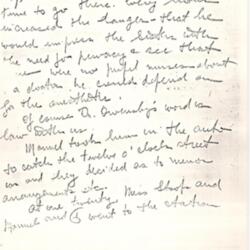 time to go there. Every hour
increased the danger - that he
would impress the Sisters with
the need for privacy & see that
there were no pupil nurses about
a doctor he could depend on
for the anesthetic.
Of course Dr. word is
law with us.
took him in the auto
to catch the twelve o'clock street
car and they decided as to
arrangements etc.
At one twenty Miss and
and I went to the station